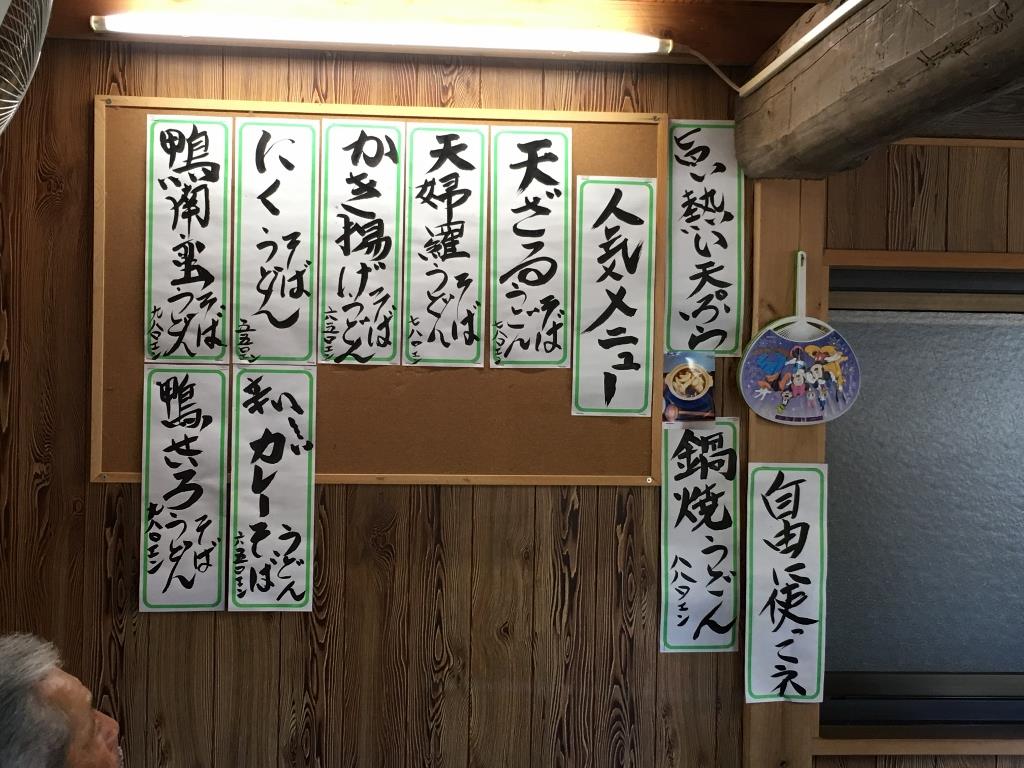 旨い熱い天ぷら
人気メニュー
天ざるそばうどん
七八〇エン
天婦羅そばうどん
かき揚げそばうどん
六五〇エン
にくそばうどん
五五〇エン
鴨南蛮そばうどん
九八〇エン
鍋焼うどん
八八〇エン
自由に使ってネ
辛いーいカレーそばうどん
六五〇エン
鴨せいろそばうどん
九八〇エン